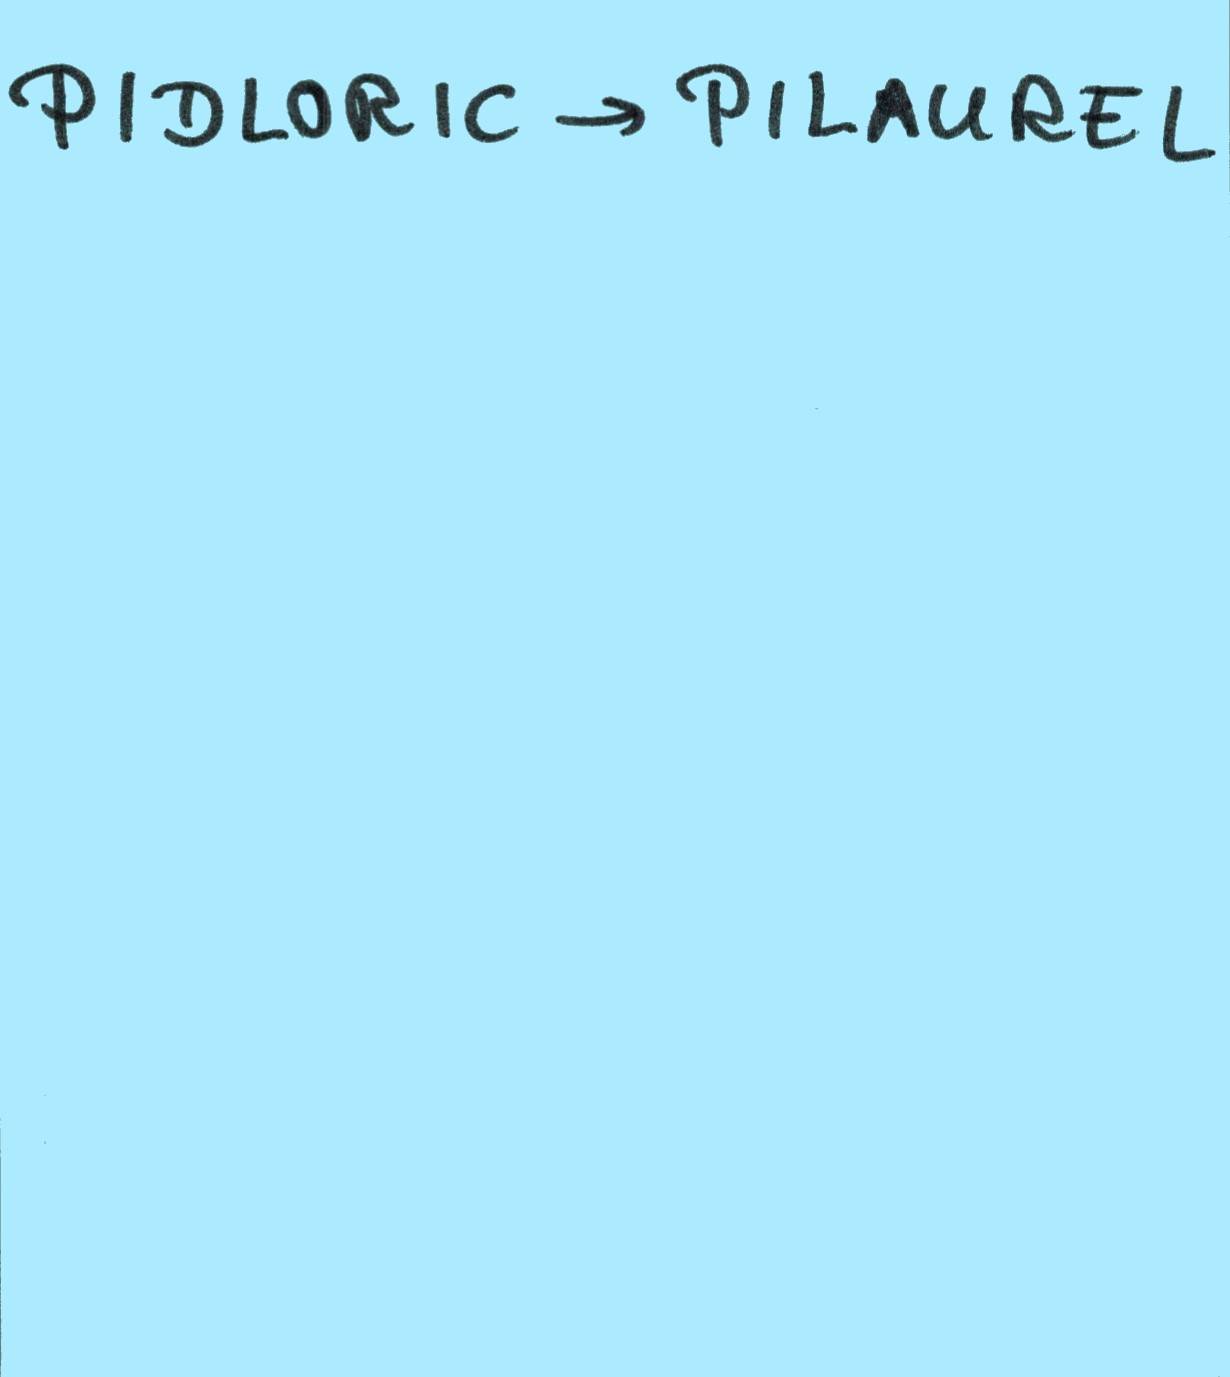 PIDLORIC → PILAUREL